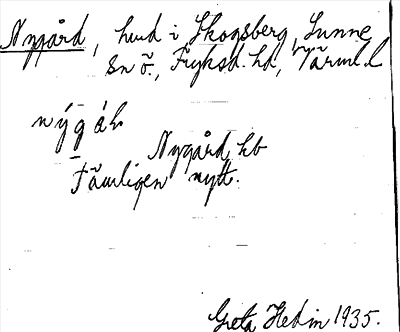 Nygård, hmd i Skogsberg, Sunne
sn ö., Fryksd. hd, Värml.
nýgáḷ
Nygård kb
Tämligen nytt.
Greta Hedin 1935.